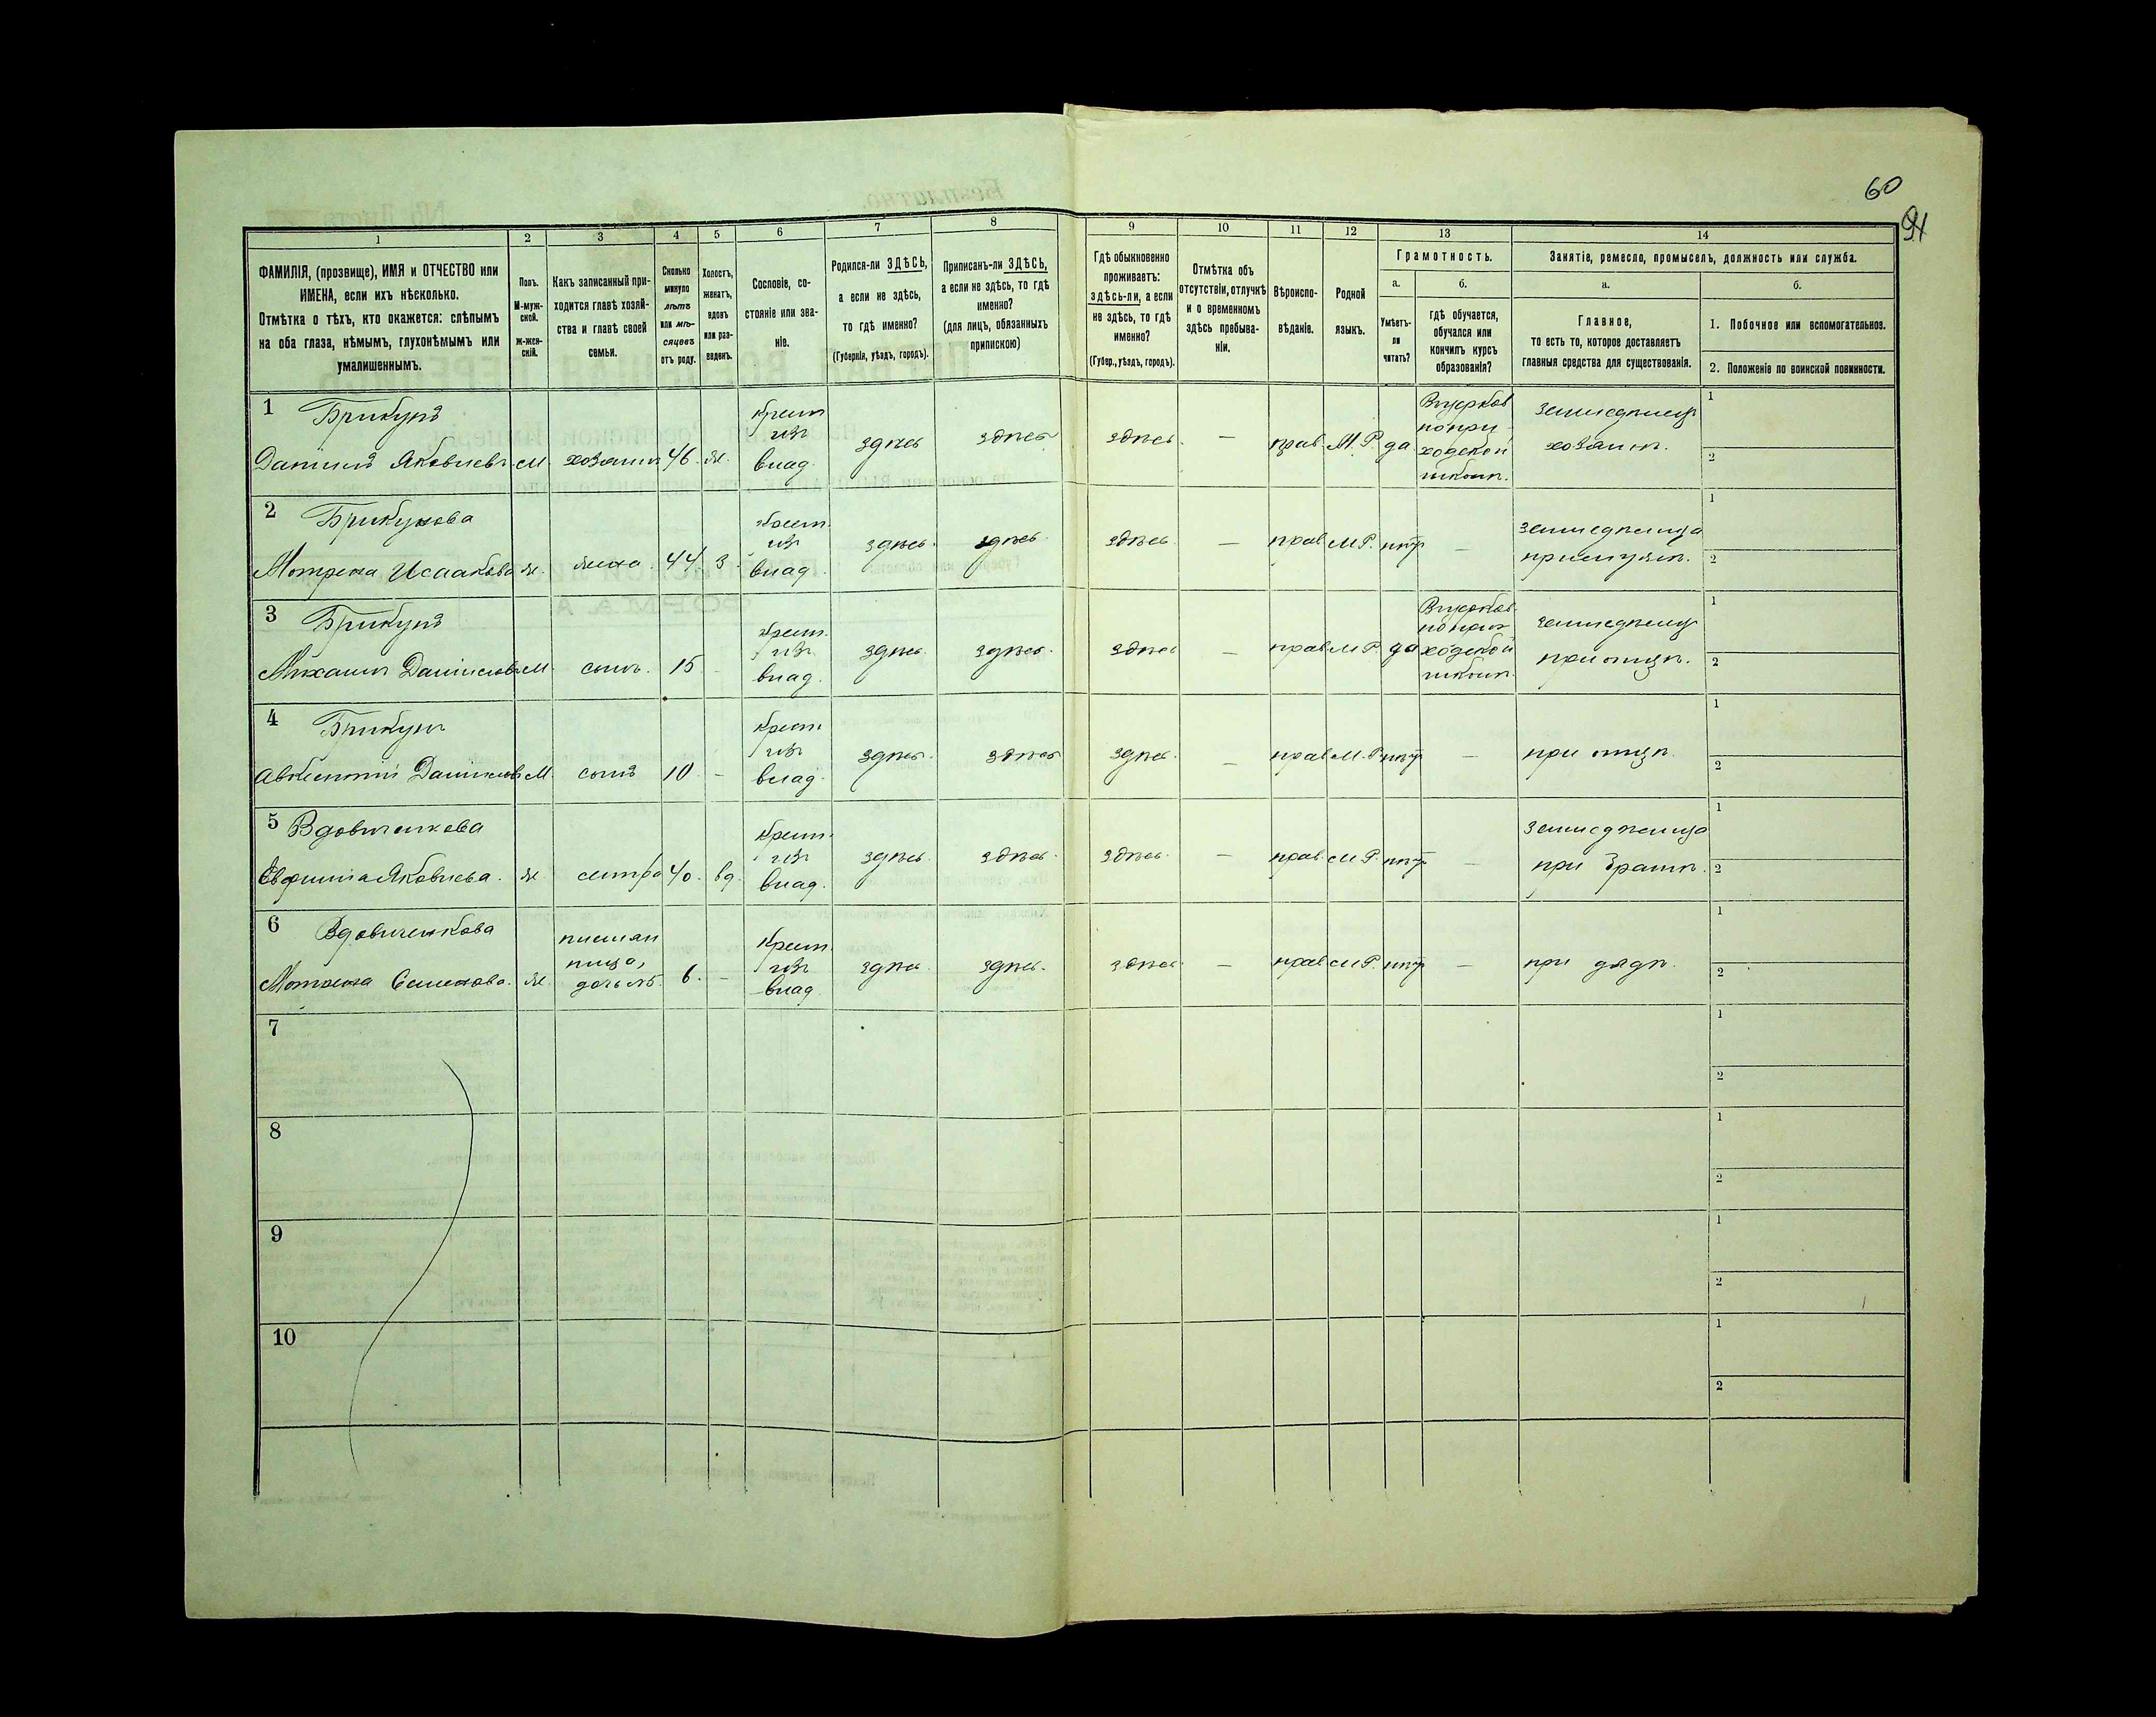 60
91
1
2
3
4
5
6
7
8
9
10
11
12
13
14
ФАМИЛІЯ, (прозвище), ИМЯ и ОТЧЕСТВО или
ИМЕНА, если ихъ нѣсколько.
Отмѣтка о тѣхъ, кто окажется: слѣпымъ
на оба глаза, нѣмымъ, глухонѣмымъ или
умалишеннымъ.
Полъ.
М-муж-
ской.
ж-жен-
скій.
Какъ записанный при-
ходится главѣ хозяй-
ства и главѣ своей
семьи.
Сколько
минуло
лѣтъ
или мѣ-
сяцевъ
отъ роду.
Холостъ,
женатъ,
вдовъ
или раз-
веденъ.
Сословіе, со-
стояніе или зва-
ніе.
Родился-ли ЗДѢСЬ,
а если не здѣсь,
то гдѣ именно?
(Губернія, уѣздъ, городъ).
Приписанъ-ли ЗДѢСЬ,
а если не здѣсь, то гдѣ
именно?
(для лицъ, обязанныхъ
припискою)
Гдѣ обыкновенно
проживаетъ:
здѣсь-ли, а если
не здѣсь, то гдѣ
именно?
(Губер., уѣздъ, городъ).
Отмѣтка объ
отсутствіи, отлучкѣ
и о временномъ
здѣсь пребыва-
ніи.
Вѣроиспо-
вѣданіе.
Родной
языкъ.
Грамотность.
а.
Умѣетъ-
ли
читать?
б.
гдѣ обучается,
обучался или
кончилъ курсъ
образованія?
Занятіе, ремесло, промыселъ, должность или служба.
а.
Главное,
то есть то, которое доставляетъ
главныя средства для существованія.
б.
1. Побочное или вспомогательное.
2. Положеніе по воинской повинности.
1 Брикунъ
Даніилъ Яковлевъ. м. хозяинъ 46. ж. Крест. изъ влад. здѣсь здѣсь здѣсь. — прав. М.Р. да В церков но при ходской школѣ. земледѣлецъ хозяинъ. 1 2
2 Брикунова
Мотрена Исаакова ж. жена. 44. з. Крест. изъ влад. здѣсь. здѣсь. здѣсь. — прав. М.Р. нѣтъ — земледѣлица при мужѣ. 1 2
3 Брикунъ
Михаилъ Даніиловъ М. сынъ. 15. - Крест. изъ влад. здѣсь. здѣсь. здѣсь — прав. М.Р. да В церков. но при ходской школѣ. земледѣлецъ при отцѣ. 1 2
4 Брикунъ
Авксентій Даніиловъ М. сынъ 10. - Крест. изъ влад. здѣсь. здѣсь здѣсь. — прав. М.Р. нѣтъ — при отцѣ. 1 2
5 Вдовиченкова
Евфимія Яковлева. ж. сестра 40. вд. Крест. изъ влад. здѣсь. здѣсь. здѣсь. — прав. М.Р. нѣтъ — земледѣлица при братѣ. 1 2
6 Вдовиченкова
Мотрена Семенова. ж. племян ница, дочь №5. 6. - Крест. изъ влад. здѣсь. здѣсь. здѣсь. — прав. М.Р. нѣтъ — при дядѣ. 1 2
7 1 2
8 1 2
9 1 2
10 1 2